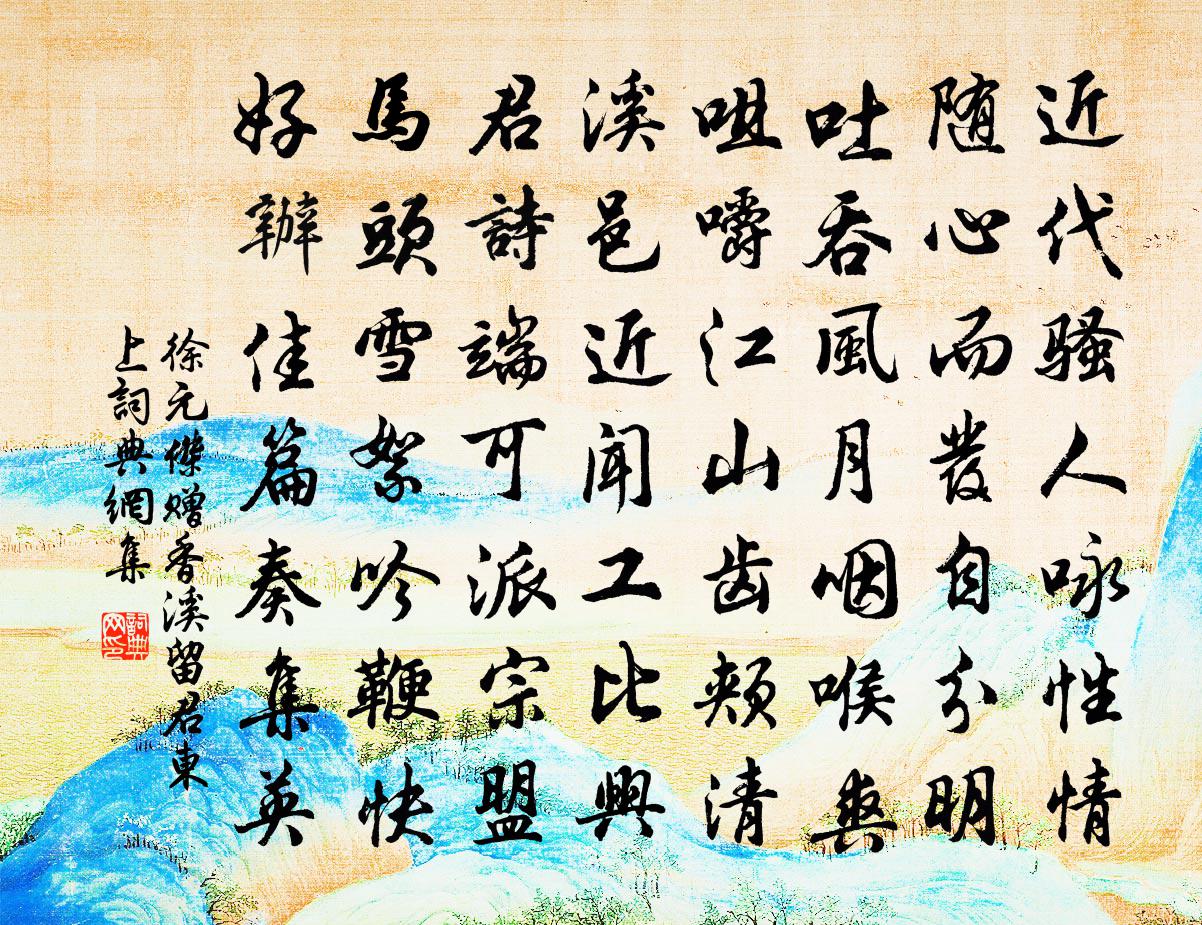 近代骚人咏性情
随心而发自分明
吐吞風月咽喉爽
咀嚼江山齿颊清
溪邑近闻工比興
君詩端可派宗盟
馬頭雪絮吟鞭快
好辦佳篇奏集英
徐元傑赠香溪留君東
上詞典網集
詞典网印